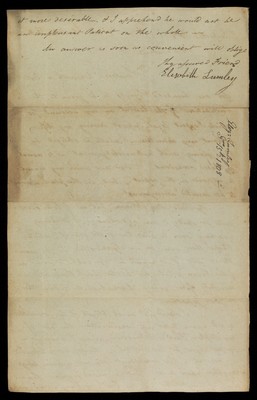 more desirable, & I apprehend he would not be
an unpleasant Patient on the whole
An answer as soon as convenient will oblige
Thy assured Friend
Elizabeth Lumley
Eliz: Lumley